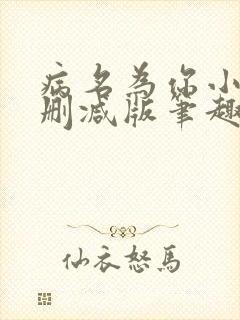 病名為你小
删减版笔趣
仙衣怒馬